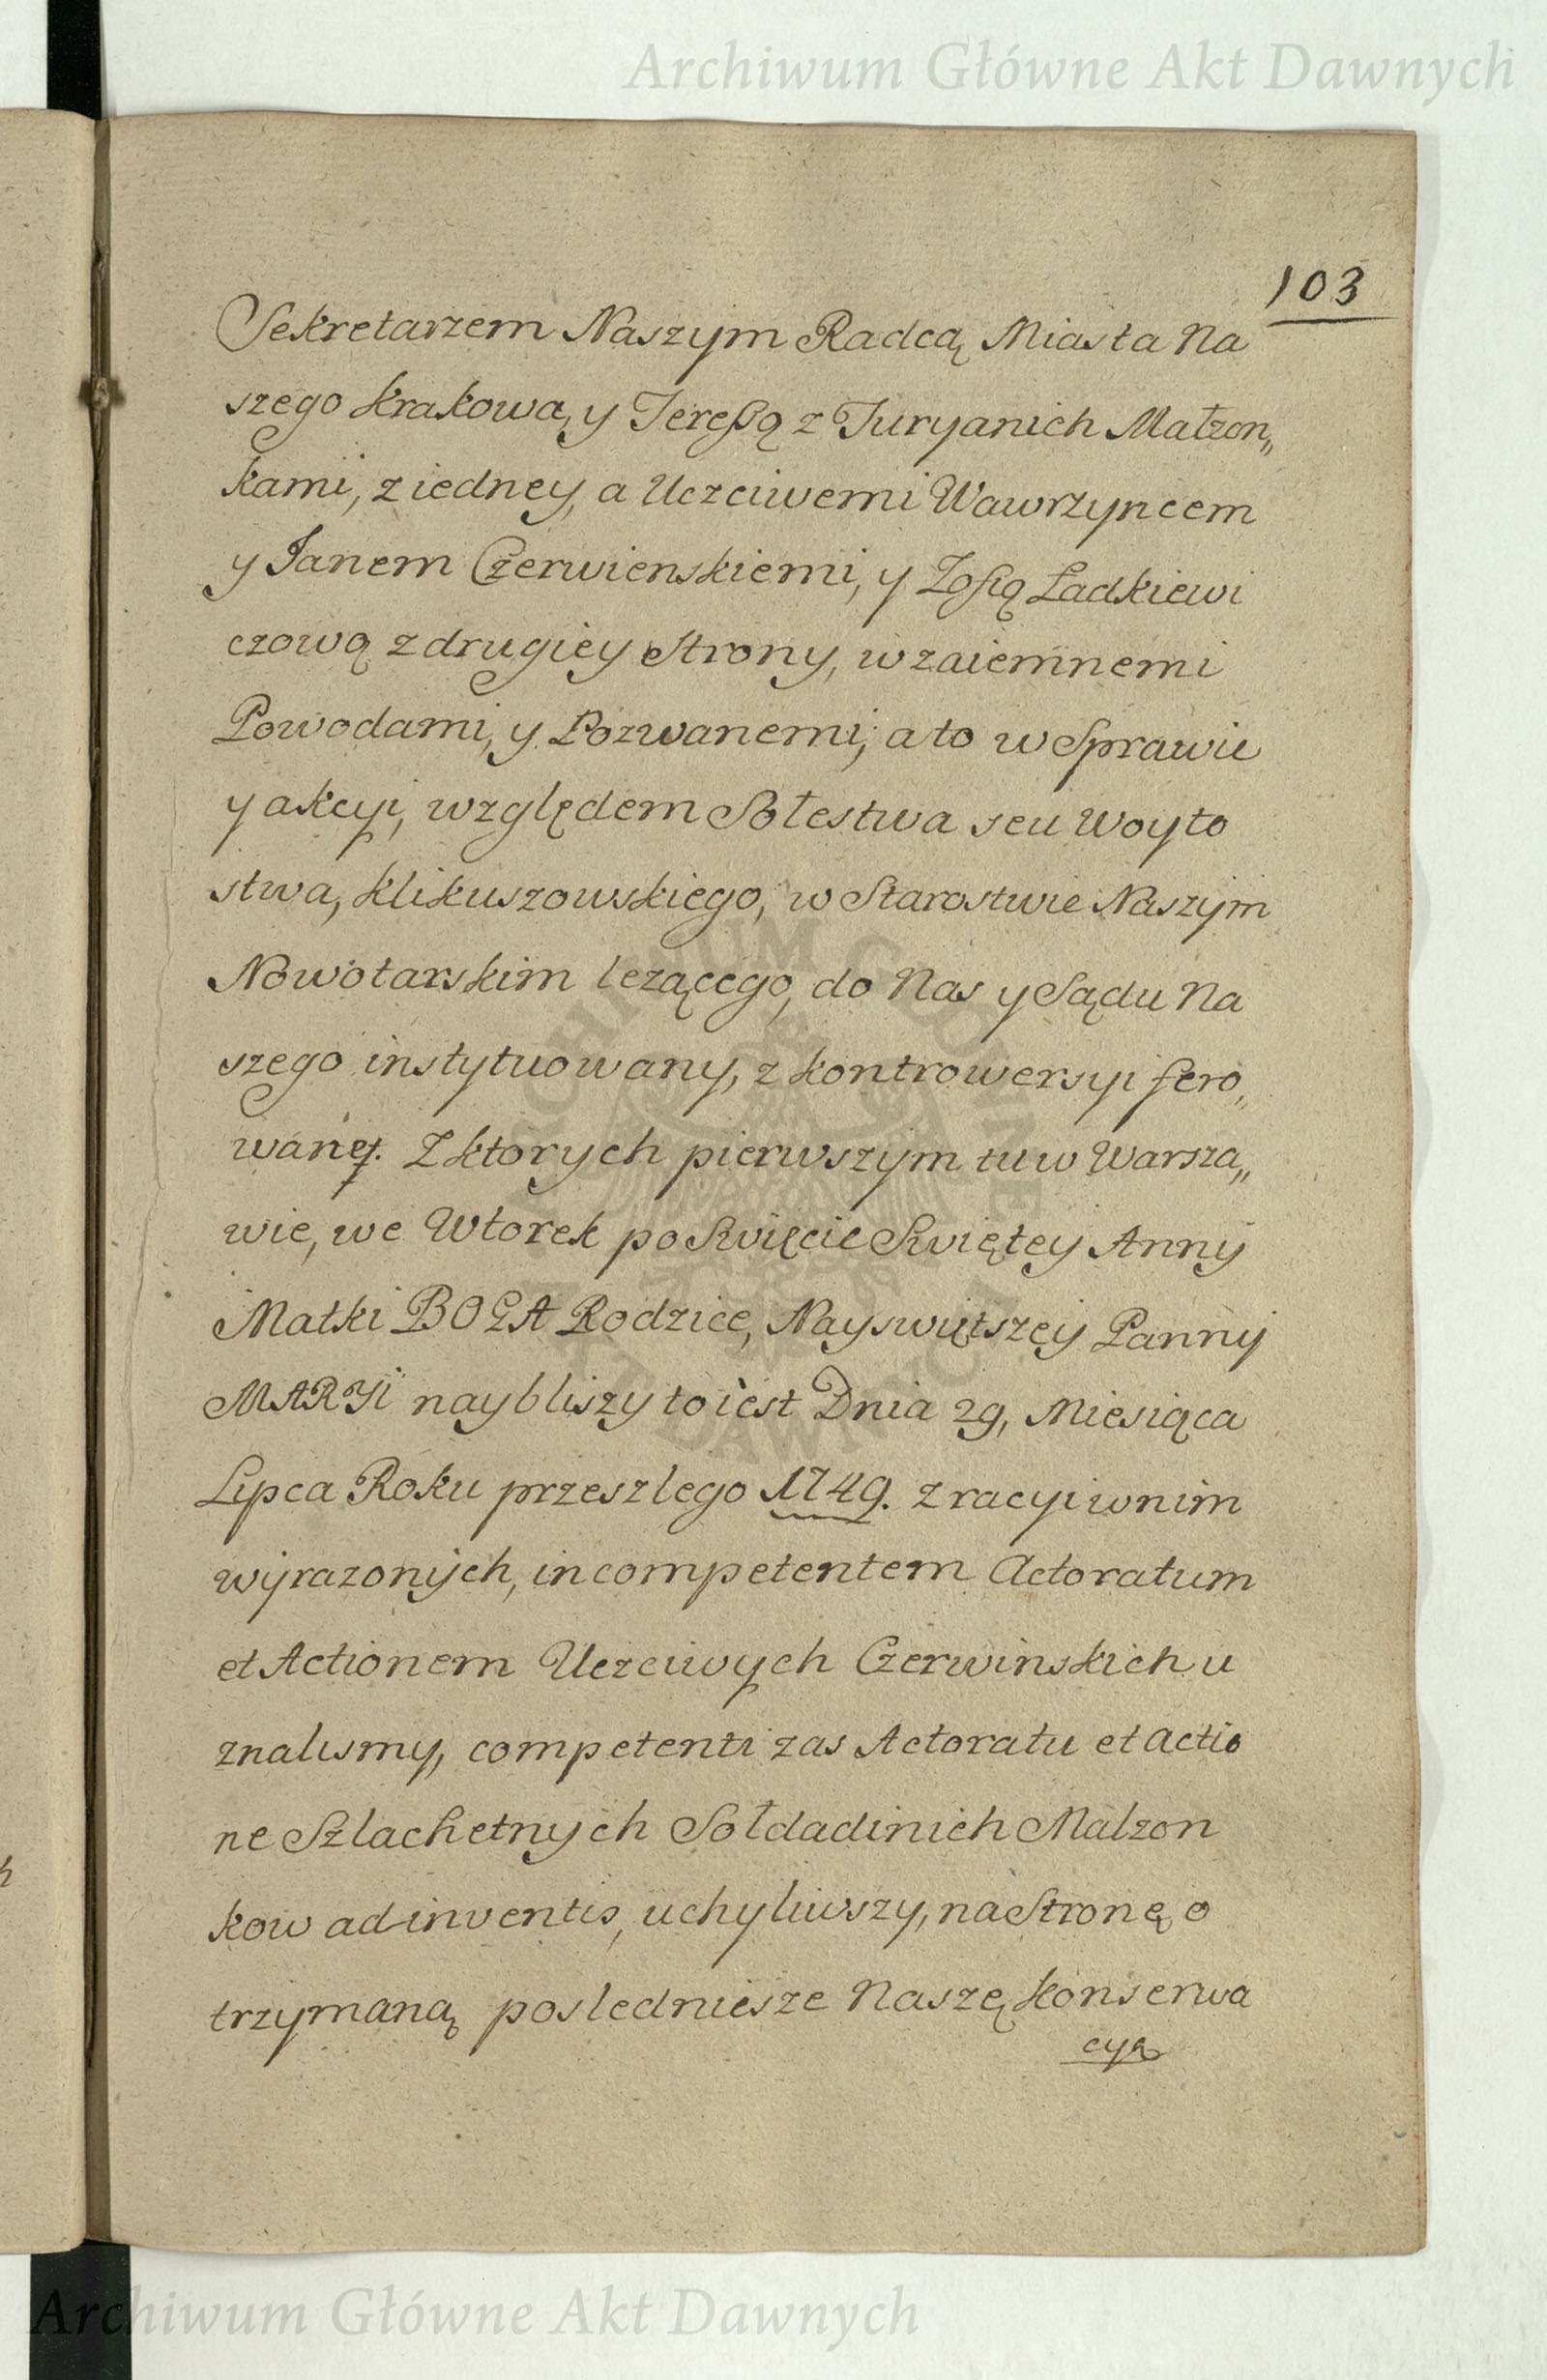 Archiwum Główne Akt Dawnych
103
Sekretarzem Naszym Radcą Miasta Na
szego Krakowa, y Tereßą z Turyanich Małzon„
kami, z iedney, a Uczciwemi Wawrzyncem
y Janem Czerwienskiemi, y Zofią Ładkiewi
czową z drugiey Strony, wzaiemnemi
Powodami, y Pozwanemi, a to w Sprawie
y akcyi, względem Sołestwa seu Woyto
stwa, Klikuszowskiego, w Starostwie Naszym
Nowotarskim lezącego, do Nas y Sądu Na
szego instytuowany, z kontrowersyi fero„
waney. Z ktorych pierwszym tu w Warsza„
wie, we Wtorek po Swięcie Swiętey Anny
Matki BOGA Rodzice, Nayswiętszey Panny
MARYI naybliszy to iest Dnia 29, Miesiąca
Lipca Roku przeszlego 1749. z racyi w nim
wyrazonych, incompetentem Actoratum
et Actionem Uczciwych Czerwinskich u
znalismy, competenti zas Actoratu et actio
ne Szlachetnych Sołdadinich Malzon
kow ad inventis, uchyliwszy, na Stronę o
trzymaną posledniesze Naszę Konserwa
cyą
ARCHIWUM GŁÓWNE
AKT DAWNYCH
Archiwum Główne Akt Dawnych